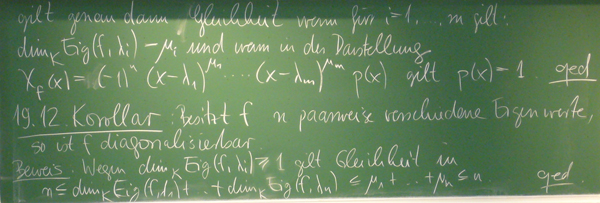 gilt genau dann Gleichheit wenn für i=1, ... m gilt:
dim_K Eig(f, λ_i) = μ_i und wenn in der Darstellung
X_f(x) = (-1)^n (x-λ_1)^μ_1 ... (x-λ_m)^μ_m p(x) gilt p(x) = 1. qed
19.12. Korollar: Besitzt f n paarweise verschiedene Eigenwerte,
so ist f diagonalisierbar.
Beweis. Wegen dim_K Eig(f, λ_i) ≥ 1 gilt Gleichheit in
n ≤ dim_K Eig(f, λ_1) + ... + dim_K Eig(f, λ_n) ≤ μ_1 + ... + μ_n ≤ n. qed